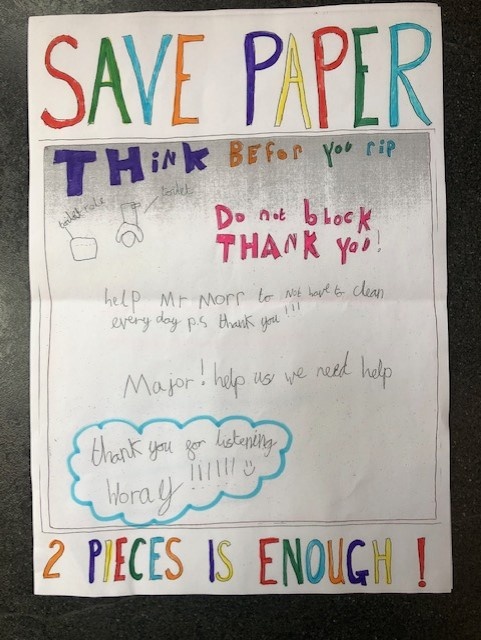 SAVE PAPER
THiNK BEFor You rip
toilet role
toilet
Do not block
THANK You!
help Mr Morr to not have to clean
every day p.s thank you!!!
Major! help us we need help
thank you for listening
Horay !!!!!!
2 PIECES IS ENOUGH!